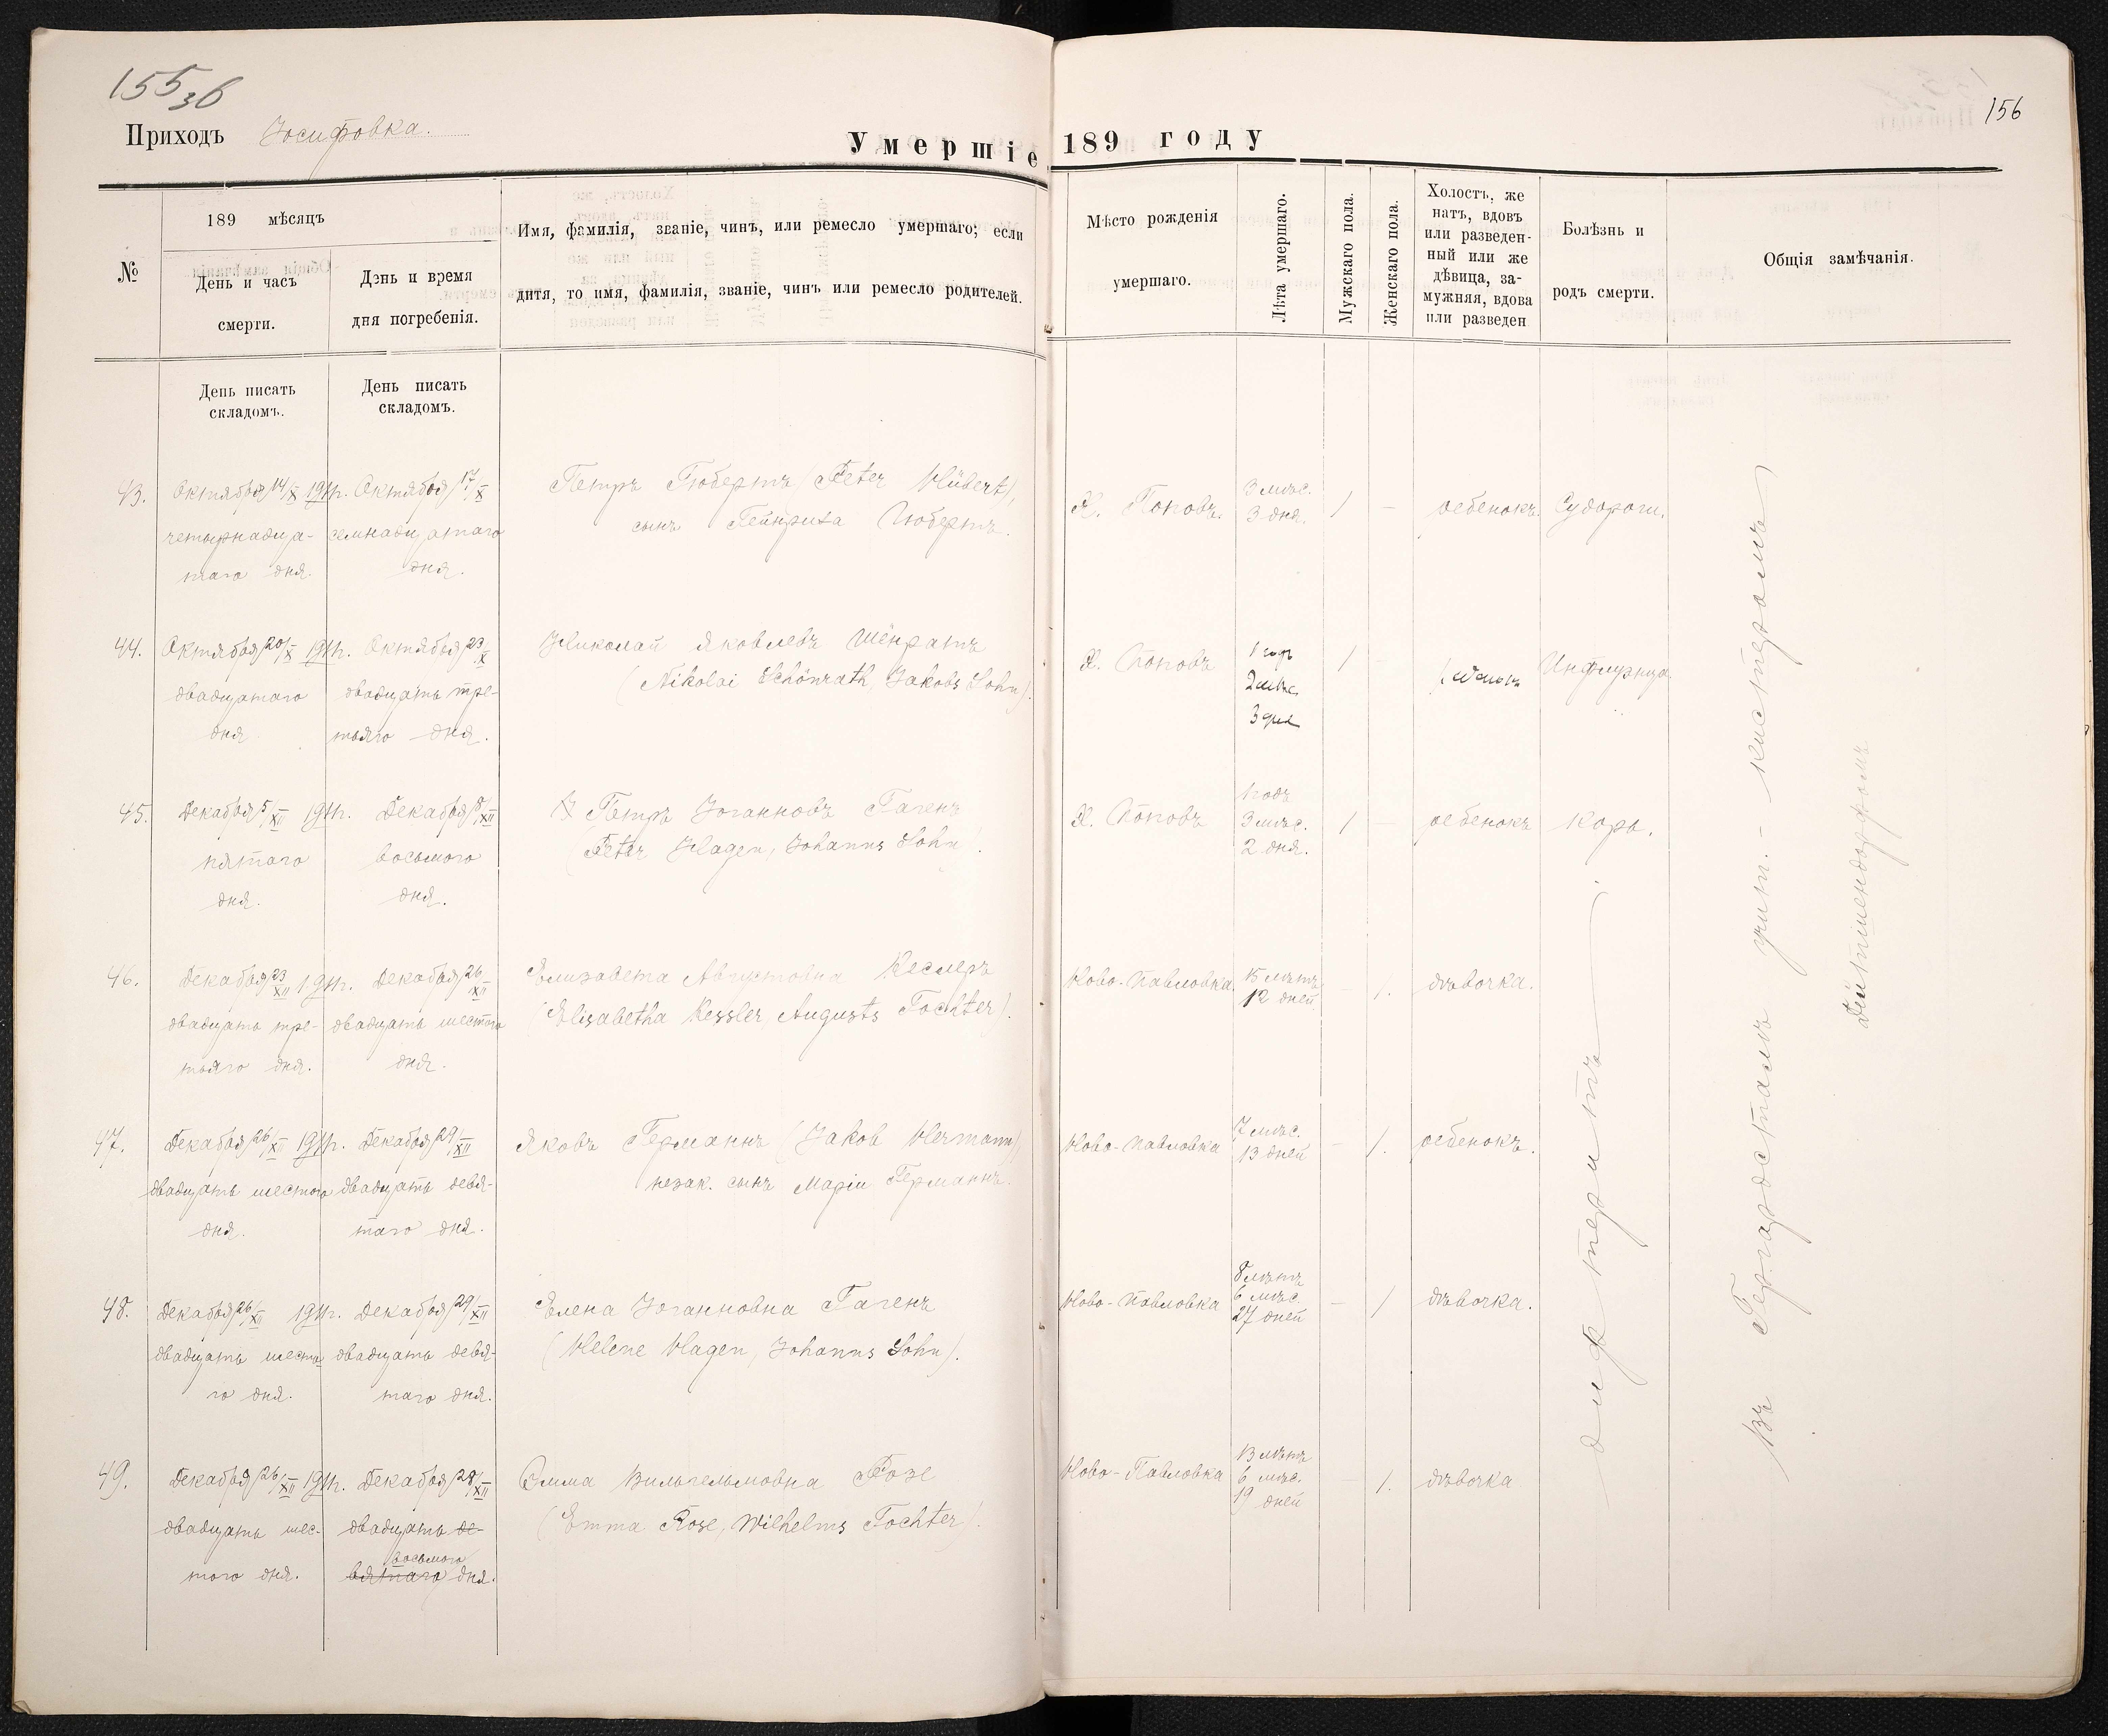 155 зб
156
Приходъ Іосифовка.
Умершіе 189 году
№
189 мѣсяцъ
День и часъ
смерти.
День и время
дня погребенія.
Имя, фамилія, званіе, чинъ, или ремесло умершаго; если
дитя, то имя, фамилія, званіе, чинъ или ремесло родителей.
Мѣсто рожденія
умершаго.
Лѣта умершаго.
Мужскаго пола.
Женскаго пола.
Холостъ, же
натъ, вдовъ
или разведен-
ный или же
дѣвица, за-
мужняя, вдова
или разведен
Болѣзнь и
родъ смерти.
Общія замѣчанія.
День писать
складомъ.
День писать
складомъ.
43.
Октября 14/X 1911г.
четырнадца-
таго дня.
Октября 17/X
семнадцатаго
дня.
Петръ Гюбертъ (Peter Hübert),
сынъ Гейнриха Гюбертъ.
Х. Поповъ.
3 мѣс.
3 дня.
1
-
ребенокъ.
Судороги.
44.
Октября 20/X 1911г.
двадцатаго
дня
Октября 23/X
двадцать тре-
тьяго дня.
Николай Яковлевъ Шёнратъ
(Nikolai Schönrath, Jakobs Sohn).
Х. Поповъ
1 годъ
2 мѣс.
3 дня
1
-
Инфлуэнца.
45.
Декабря 5/XII 1911г.
пятаго
дня.
Декабря 8/XII
восьмого
дня.
Петръ Іоганновъ Гагенъ
(Peter Hagen, Johanns Sohn).
Х. Поповъ
1 годъ
3 мѣс.
2 дня.
1
-
ребенокъ
корь.
46.
Декабря 23/XII 1911г.
двадцать тре-
тьяго дня.
Декабря 26/XII
двадцать шестого
дня.
Елизавета Августовна Кеслеръ
(Elisabetha Kessler, Augusts Tochter).
Ново-Павловка.
15 лѣтъ
12 дней
-
1.
дѣвочка.
47.
Декабря 26/XII 1911г.
двадцать шестого
дня.
Декабря 29/XII
двадцать девя-
таго дня.
Яковъ Германнъ (Jakob Hermann),
незак. сынъ Маріи Германнъ.
Ново-Павловка
7 мѣс.
13 дней
-
1.
ребенокъ.
48.
Декабря 26/XII 1911г.
двадцать шесто
го дня.
Декабря 29/XII
двадцать девя-
таго дня.
Елена Іоганновна Гагенъ
(Helene Hagen, Johanns Sohn).
Ново-Павловка
8 лѣтъ
6 мѣс.
27 дней
-
1
дѣвочка.
49.
Декабря 26/XII 1911г.
двадцать шес-
того дня.
Декабря 28/XII
двадцать де-
восьмого
вятаго дня.
Эмма Вильгельмовна Розе
(Emma Rose, Wilhelms Tochter).
Ново-Павловка
13 лѣтъ
6 мѣс.
19 дней
-
1.
дѣвочка
дифтеритъ
въ Гергардсталъ учит.-кистеромъ